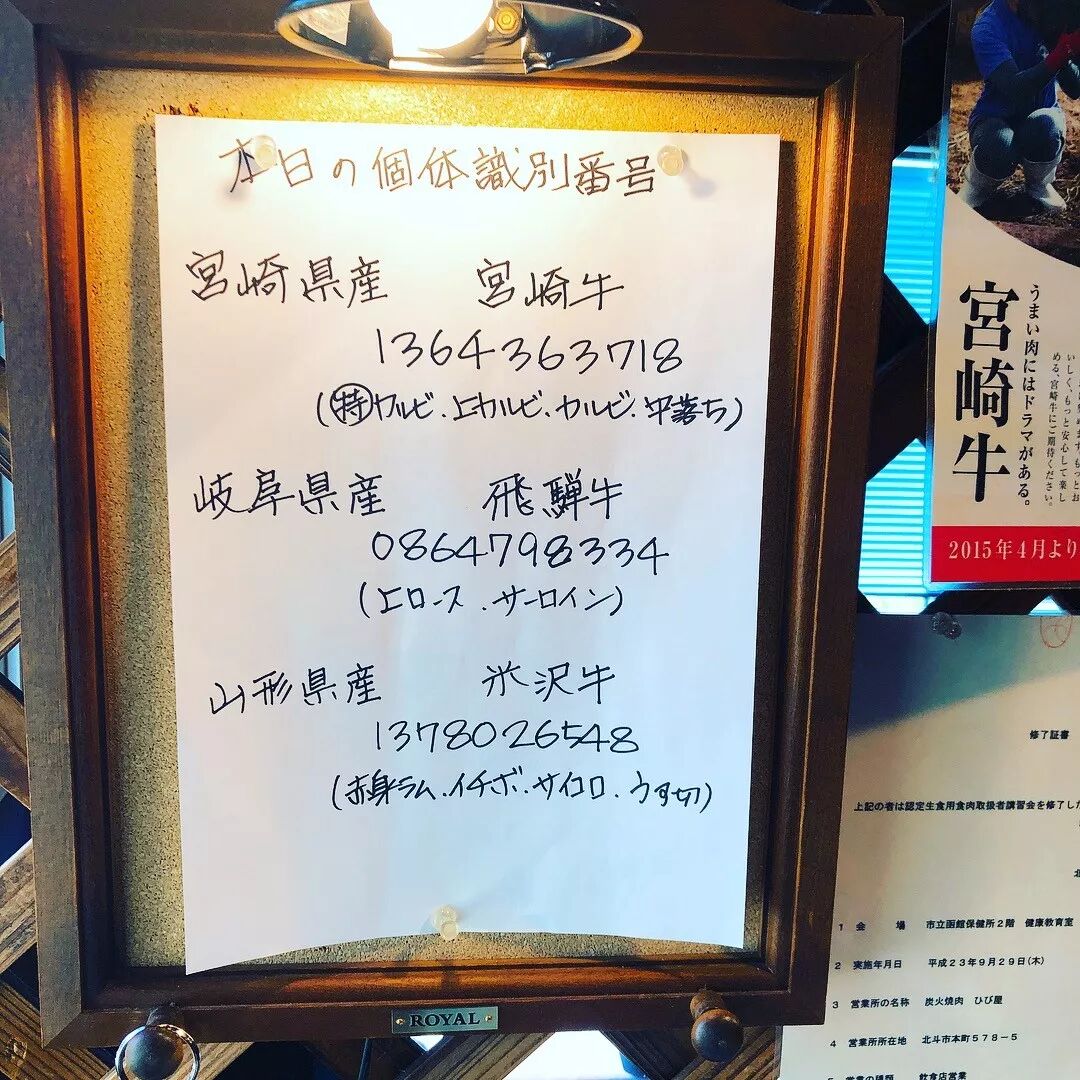 本日の個体識別番号
宮崎県産 宮崎牛
1364363718
(特カルビ.上カルビ.カルビ.中落ち)
岐阜県産 飛騨牛
0864798334
(上ロース.サーロイン)
山形県産 米沢牛
1378026548
(赤身ラム.イチボ.サイコロ.うす切)
ROYAL
うまい肉にはドラマがある。
宮崎牛
いしく、もっと安心して楽し
める、宮崎牛にご期待ください。
2015年4月より
修了証書
上記の者は認定生食用食肉取扱者講習会を修了した
北
1 会 場 市立函館保健所2階 健康教育室
2 実施年月日 平成23年9月29日(木)
3 営業所の名称 炭火焼肉 ひび屋
4 営業所所在地 北斗市本町578-5
5 営業の種類 飲食店営業